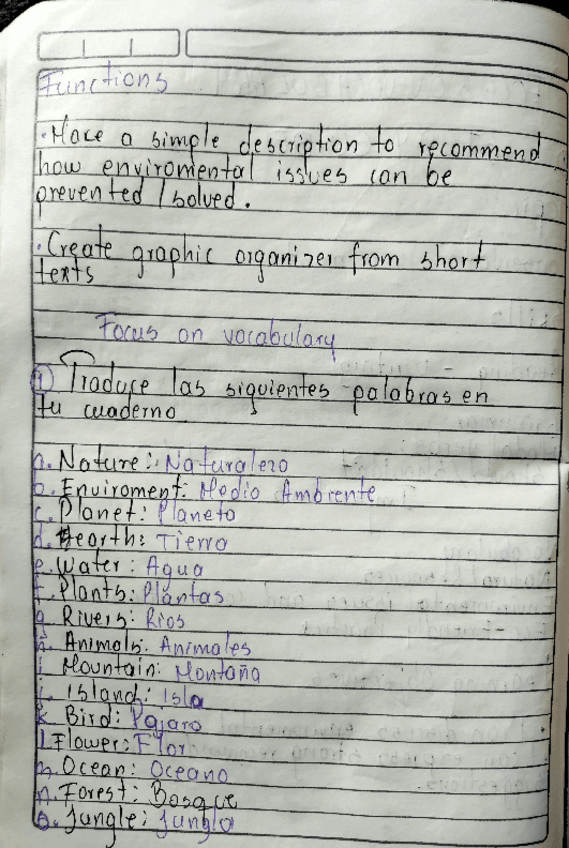 Functions
• Make a simple description to recommend
how enviromental issues can be
prevented / solved.
• Create graphic organizer from short
texts
Focus on vocabulary
① Traduce las siguientes palabras en
tu cuaderno
a. Nature: Naturaleza
b. Enviroment: Medio Ambiente
c. Planet: Planeta
d. Hearth: Tierra
e. Water: Agua
f. Plants: Plantas
g. Rivers: Rios
h. Animals: Animales
i. Mountain: Montaña
j. Island: Isla
k. Bird: Pajaro
l. Flower: Flor
m. Ocean: Oceano
n. Forest: Bosque
o. Jungle: Jungla